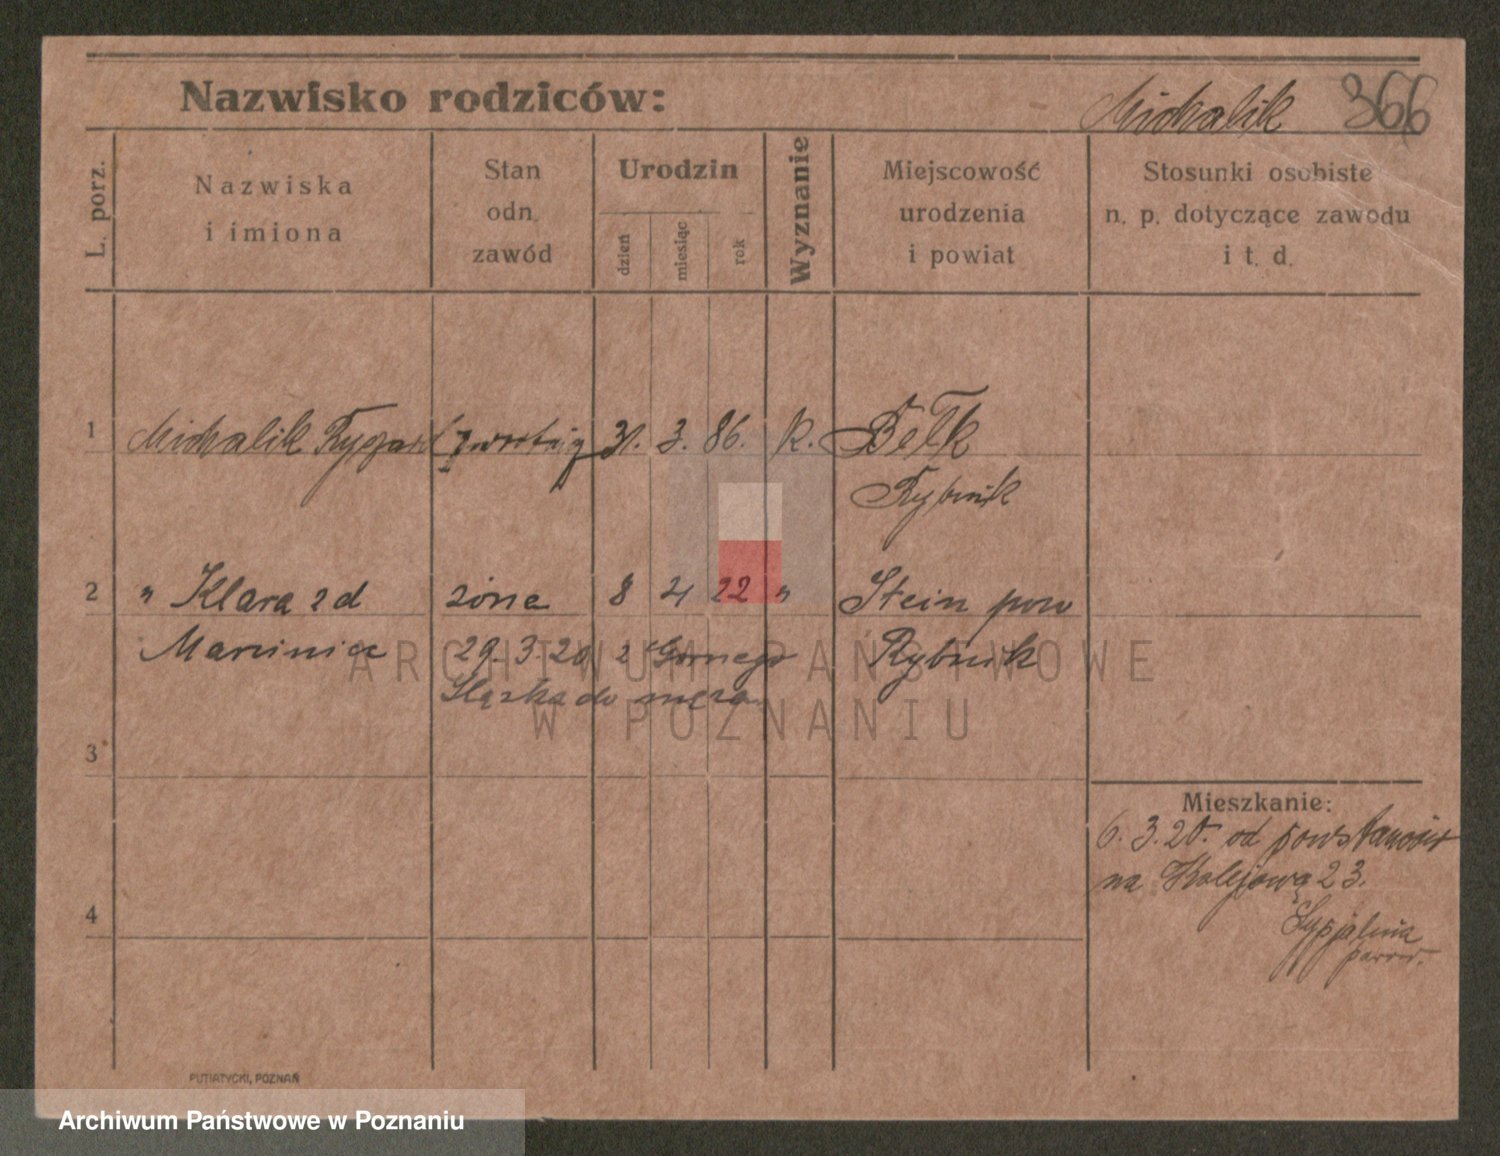 Nazwisko rodziców: Michalik 366
L. porz.
Nazwiska i imiona
Stan odn. zawód
Urodzin
dzień
miesiąc
rok
Wyznanie
Miejscowość urodzenia i powiat
Stosunki osobiste n. p. dotyczące zawodu i t. d.
1 Michalik Ryszard 31. 3. 86. K. Bełk
Rybnik
2 " Klara z d żona 8 4 22 " Stein pow
29. 3. 20 z Górnego Rybnik
Śląska do męża
3
Mieszkanie:
6. 3. 20. od powstańców
na Kolejową 23.
4
PUTIATYCKI, POZNAŃ
ARCHIWUM PAŃSTWOWE
W POZNANIU
Archiwum Państwowe w Poznaniu